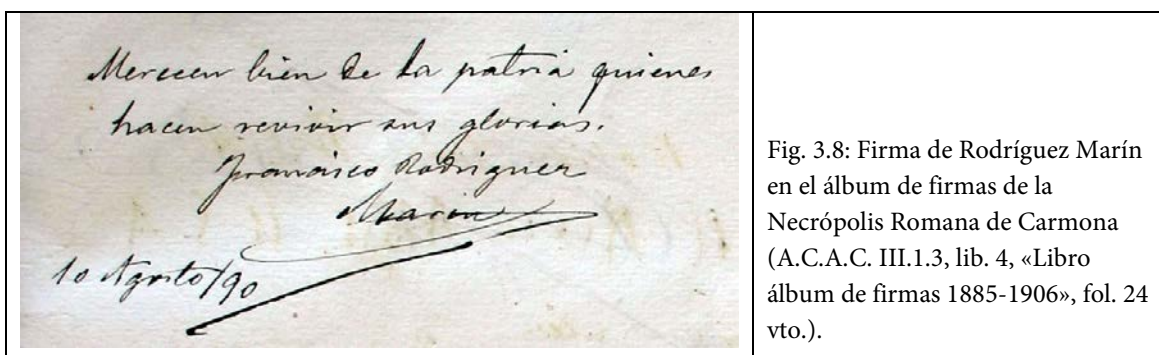 Merecen bien de la patria quienes
hacen revivir sus glorias.
Francisco Rodriguez
Marin
10 Agosto/90
Fig. 3.8: Firma de Rodríguez Marín
en el álbum de firmas de la
Necrópolis Romana de Carmona
(A.C.A.C. III.1.3, lib. 4, «Libro
álbum de firmas 1885-1906», fol. 24
vto.).